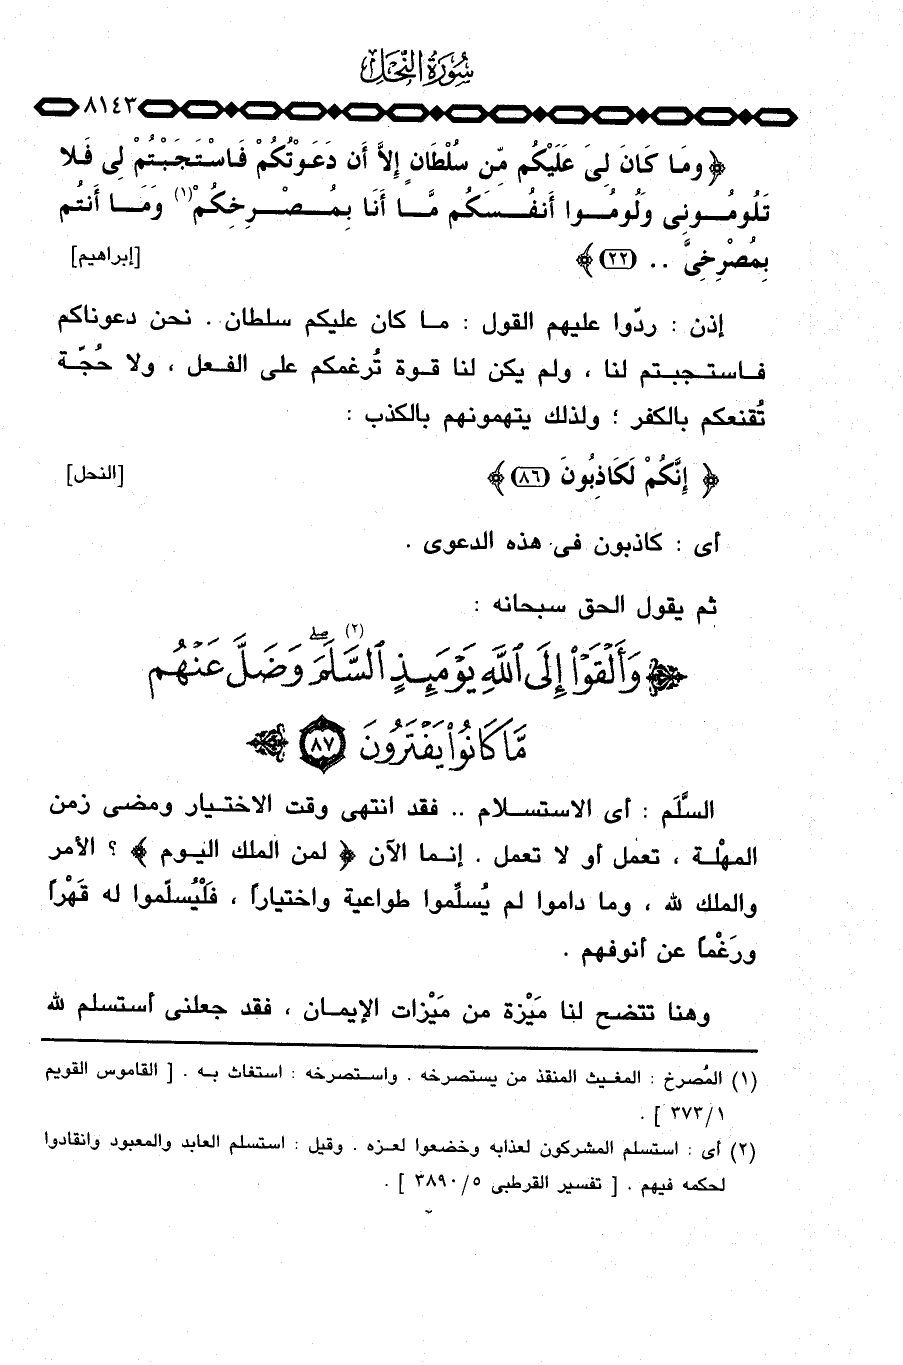 سُورَةُ النَّحْلِ
٨١٤٣
﴿ وَمَا كَانَ لِىَ عَلَيْكُم مِّن سُلْطَانٍ إِلاَّ أَن دَعَوْتُكُمْ فَاسْتَجَبْتُمْ لِى فَلا
تَلُومُونِى وَلُومُوا أَنفُسَكُم مَّا أَنَا بِمُصْرِخِكُمْ(١) وَمَا أَنتُم
بِمُصْرِخِىَّ .. (٢٢) ﴾ [إبراهيم]
إذن : ردّوا عليهم القول : ما كان عليكم سلطان . نحن دعوناكم
فاستجبتم لنا ، ولم يكن لنا قوة تُرغمكم على الفعل ، ولا حُجّة
تُقنعكم بالكفر ؛ ولذلك يتهمونهم بالكذب :
﴿ إِنَّكُمْ لَكَاذِبُونَ (٨٦) ﴾ [النحل]
أى : كاذبون فى هذه الدعوى .
ثم يقول الحق سبحانه :
﴿ وَأَلْقَوْا۟ إِلَى ٱللَّهِ يَوْمَئِذٍ ٱلسَّلَمَ(٢)ۖ وَضَلَّ عَنْهُم
مَّا كَانُوا۟ يَفْتَرُونَ ٨٧ ﴾
السَّلَم : أى الاستسلام .. فقد انتهى وقت الاختيار ومضى زمن
المهْلة ، تعمل أو لا تعمل . إنما الآن ﴿ لمن الملك اليوم ﴾ ؟ الأمر
والملك لله ، وما داموا لم يُسلِّموا طواعية واختياراً ، فَلْيُسلّموا له قَهْراً
ورَغْماً عن أنوفهم .
وهنا تتضح لنا مَيْزة من مَيْزات الإيمان ، فقد جعلنى أستسلم لله
(١) المُصرخ : المغيث المنقذ من يستصرخه . واستصرخه : استغاث به . [ القاموس القويم
٣٧٣/١ ] .
(٢) أى : استسلم المشركون لعذابه وخضعوا لعزه . وقيل : استسلم العابد والمعبود وانقادوا
لحكمه فيهم . [ تفسير القرطبى ٣٨٩٠/٥ ] .